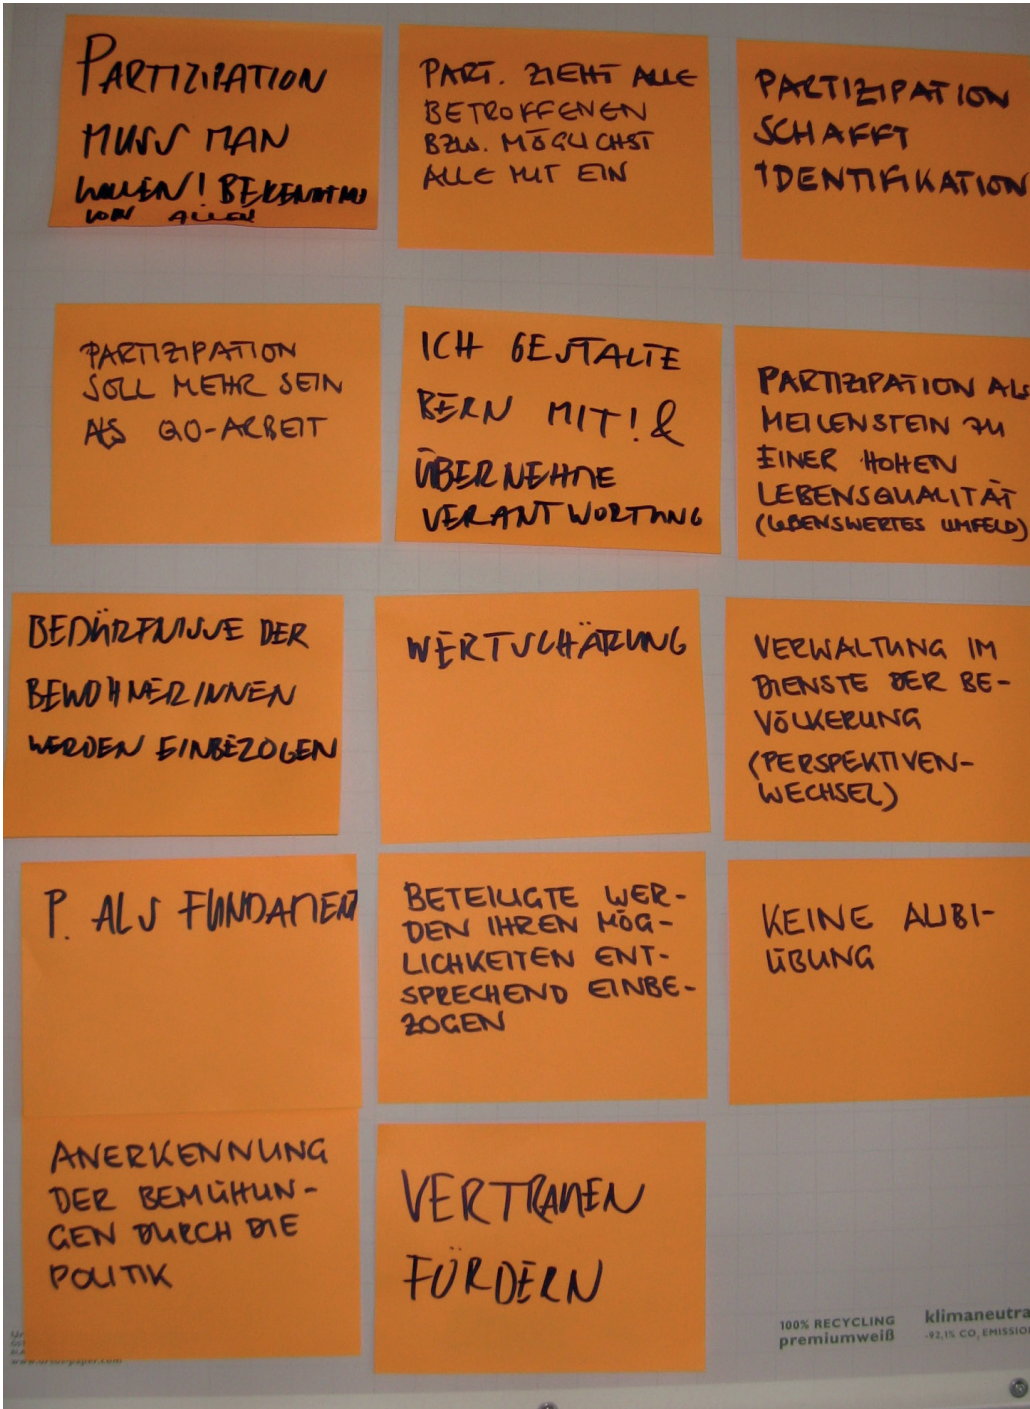 PARTIZIPATION
MUSS MAN
WOLLEN! BEKENNTNIS
VON ALLEN
PART. ZIEHT ALLE
BETROFFENEN
BZW. MÖGLICHST
ALLE MIT EIN
PARTIZIPATION
SCHAFFT
IDENTIFIKATION
PARTIZIPATION
SOLL MEHR SEIN
ALS QO-ARBEIT
ICH GESTALTE
BERN MIT! &
ÜBERNEHME
VERANTWORTUNG
PARTIZIPATION ALS
MEILENSTEIN ZU
EINER HOHEN
LEBENSQUALITÄT
(LEBENSWERTES UMFELD)
BEDÜRFNISSE DER
BEWOHNERINNEN
WERDEN EINBEZOGEN
WERTSCHÄTZUNG
VERWALTUNG IM
DIENSTE DER BE-
VÖLKERUNG
(PERSPEKTIVEN-
WECHSEL)
P. ALS FUNDAMENT
BETEILIGTE WER-
DEN IHREN MÖG-
LICHKEITEN ENT-
SPRECHEND EINBE-
ZOGEN
KEINE ALIBI-
ÜBUNG
ANERKENNUNG
DER BEMÜHUN-
GEN DURCH DIE
POLITIK
VERTRAUEN
FÖRDERN
100% RECYCLING
premiumweiß
klimaneutra
-92,1% CO₂ EMISSIO